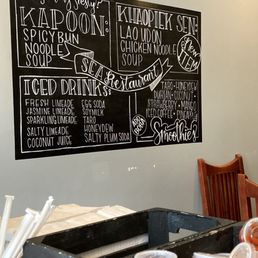 KAPOON:
SPICY BUN
NOODLE
SOUP
KHAOPIEK SEN:
LAO UDON
CHICKEN NOODLE
SOUP
New
ITEM
SET
Restaurant
ICED DRINKS:
FRESH LIMEADE
JASMINE LIMEADE
SPARKLING LIMEADE
THAI LIMEADE
SALTY LIMEADE
COCONUT JUICE
EGG SODA
SOYMILK
TARO
HONEYDEW
SALTY PLUM SODA
TARO • HONEYDEW
DURIAN • COCONUT
STRAWBERRY • MANGO
ICED COFFEE
Smoothie's